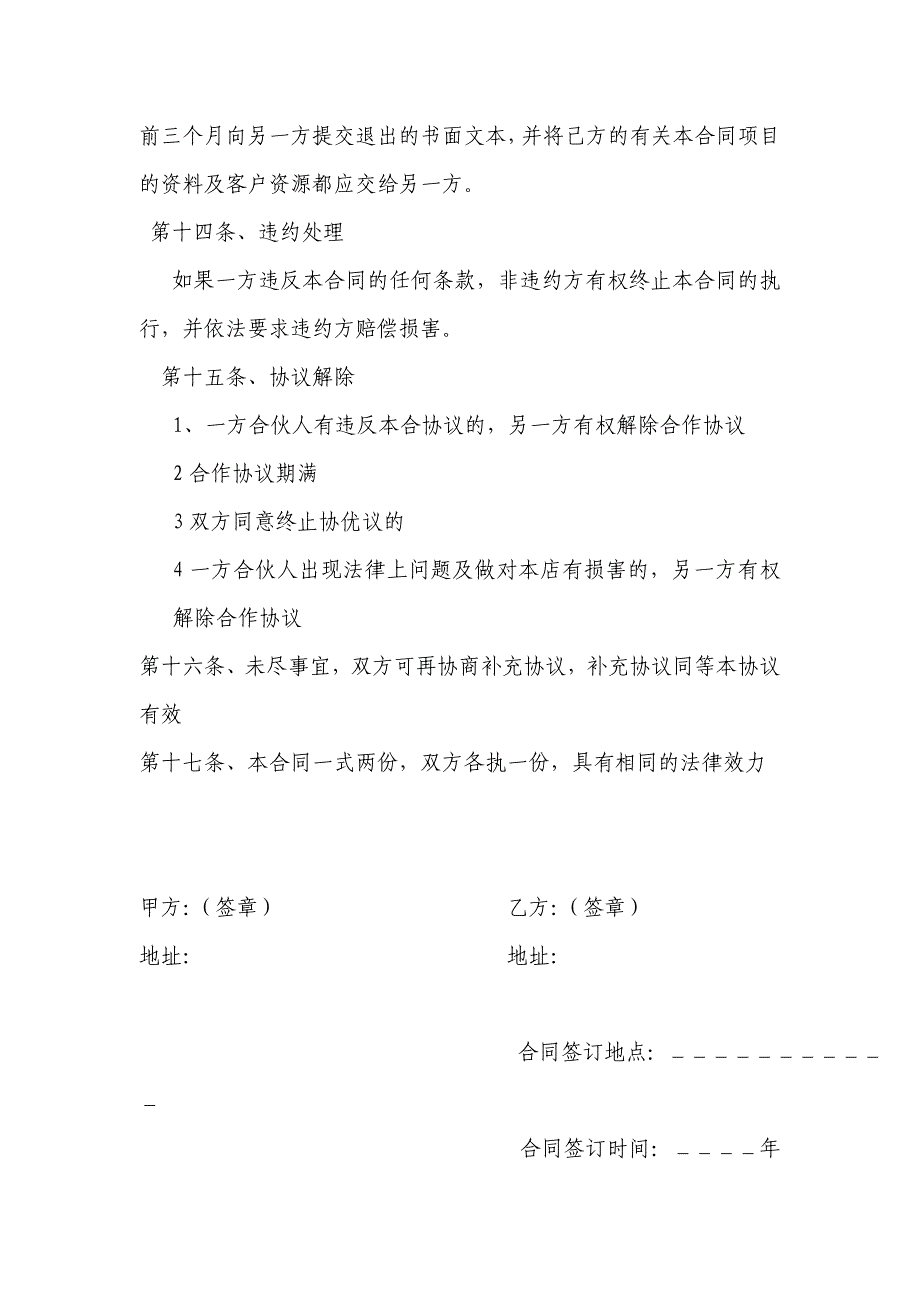 前三个月向另一方提交退出的书面文本，并将己方的有关本合同项目
的资料及客户资源都应交给另一方。
第十四条、违约处理
如果一方违反本合同的任何条款，非违约方有权终止本合同的执
行，并依法要求违约方赔偿损害。
第十五条、协议解除
1、一方合伙人有违反本合协议的，另一方有权解除合作协议
2 合作协议期满
3 双方同意终止协优议的
4 一方合伙人出现法律上问题及做对本店有损害的，另一方有权
解除合作协议
第十六条、未尽事宜，双方可再协商补充协议，补充协议同等本协议
有效
第十七条、本合同一式两份，双方各执一份，具有相同的法律效力
甲方：（签章） 乙方：（签章）
地址： 地址：
合同签订地点：＿＿＿＿＿＿＿＿＿＿
＿
合同签订时间：＿＿＿＿年